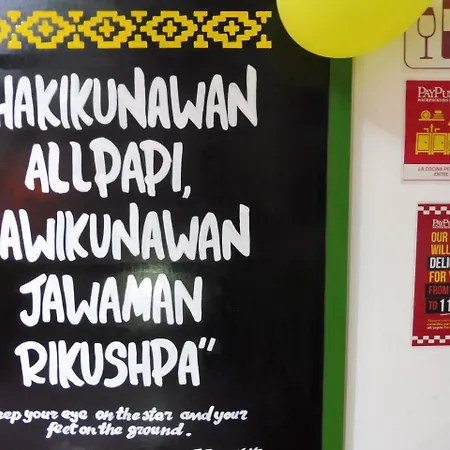 HAKIKUNAWAN
ALLPAPI,
AWIKUNAWAN
JAWAMAN
RIKUSHPA"
eep your eye on the star and your
feet on the ground.
LA COCINA
OUR
WILL
DELIC
FOR Y
FROM
TO 11